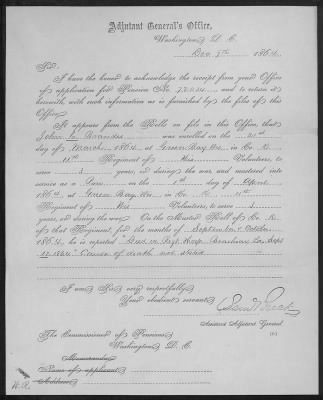 Adjutant General's Office,
Washington D. C.
Dec 9th 1864
Sir,
I have the honor to acknowledge the receipt from your Office
of application for Pension No. and to return it
herewith, with such information as is furnished by the files of this
Office.
It appears from the Rolls on file in this Office, that
John was enrolled on the
day of March, 1864, at Green Bay Wis in Co. K
Regiment of Wis Volunteers, to
serve 3 years, or during the war, and mustered into
service as a on the day of April
1864, at Green Bay Wis, in Co. K
Regiment of Wis Volunteers, to serve 3
years, or during the war. On the Muster Roll of Co. K
of that Regiment, for the months of September & October
1864, he is reported Died in Regt Hosp Sept
1864 Cause of death not stated
I am, Sir, very respectfully,
Your obedient servant,
Assistant Adjutant General.
The Commissioner of Pensions
Washington, D. C.
Memoranda
Name of applicant
Address